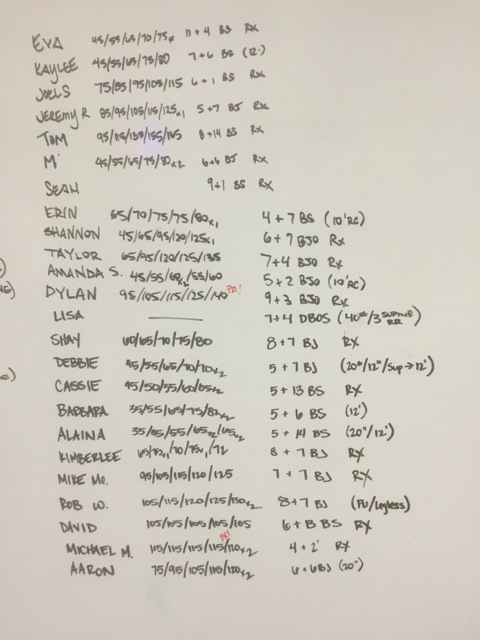 EVA 45/55/65/70/75x 11+4 BS RX
KAYLEE 45/55/65/75/80 7+6 BS (12')
JOELS 75/85/95/105/115 6+1 BS RX
JEREMY R 85/95/105/115/125x1 5+7 BJ RX
TOM 95/115/135/155/165 8+14 BS RX
M 45/55/65/75/80x2 6+6 BJ RX
SEAN 9+1 BS RX
ERIN 65/70/75/75/80x1 4+7 BS (10'RC)
SHANNON 45/65/95/120/125x1 6+7 BJO RX
TAYLOR 65/95/120/125/135 7+4 BJO RX
AMANDA S. 45/55/60x2/55/60 5+2 BJO (10'RC)
DYLAN 95/105/115/125/140 PR! 9+3 BJO RX
LISA 7+4 DBOS (40#/3 SUPINE RR)
SHAY 60/65/70/75/80 8+7 BJ RX
DEBBIE 45/55/65/70/70x2 5+7 BJ (20#/12"/Sup→12')
CASSIE 45/50/55/60/65x2 5+13 BS RX
BARBARA 35/55/65/75/82x2 5+6 BS (12')
ALAINA 35/45/55/65x2/65x2 5+14 BS (20"/12')
KIMBERLEE 65/72x1/70/75x1/72 8+7 BJ RX
MIKE Mc. 95/105/115/120/125 7+7 BJ RX
ROB W. 105/115/120/125/130x2 8+7 BJ (PU/Legless)
DAVID 105/105/105/105/105 6+13 BS RX
MICHAEL M. 115/115/115/115/120x2 PR! 4+2' RX
AARON 75/95/105/115/120x2 6+6BJ (20")